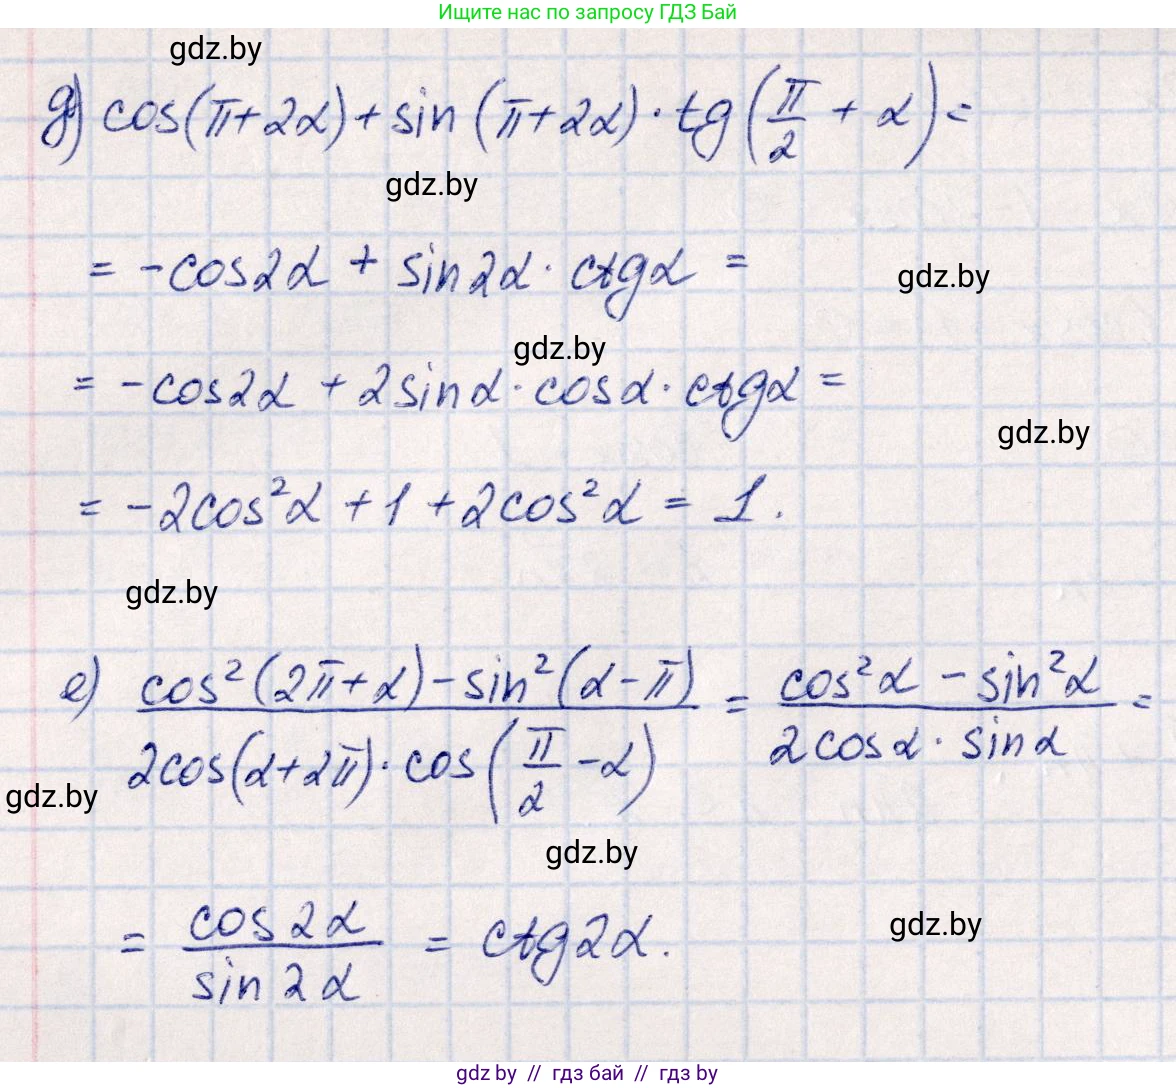 Ищите нас по запросу ГДЗ Бай
gdz.by
д) cos(π+2α)+sin(π+2α)·tg(π/2 + α)=
gdz.by
= -cos2α + sin2α·ctgα =
gdz.by
gdz.by
= -cos2α + 2sinα·cosα·ctgα =
gdz.by
= -2cos²α + 1 + 2cos²α = 1.
gdz.by
е) (cos²(2π+α)-sin²(α-π))/(2cos(α+2π)·cos(π/2 -α)) = (cos²α - sin²α)/(2cosα·sinα) =
gdz.by
gdz.by
= cos2α/sin2α = ctg2α.
gdz.by
gdz.by // гдз бай // гдз by